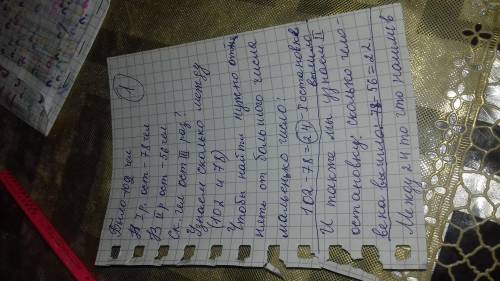 ①
Было-102 чел
В I р. ост - 78 чел
В II р ост - 56 чел
Ск. чел ост III раз?
Узнаем сколько между
(102 и 78)
Чтобы найти нужно отн
нять от большого числа
маленько число:
102-78=24)-I остановка
вышло
И также мы узнаем II
остановку: сколько чело-
века вышло: 78-56=22.
Между 24 то что нашли в